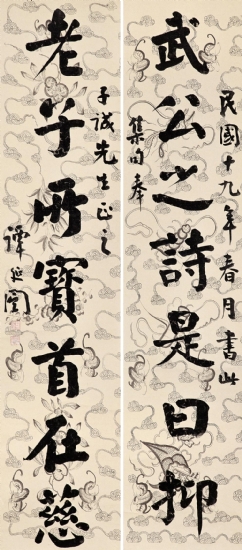 民國十九年春月書此
集句奉
武公之詩是曰抑
子誠先生正之
老子所寶首在慈
譚延闓